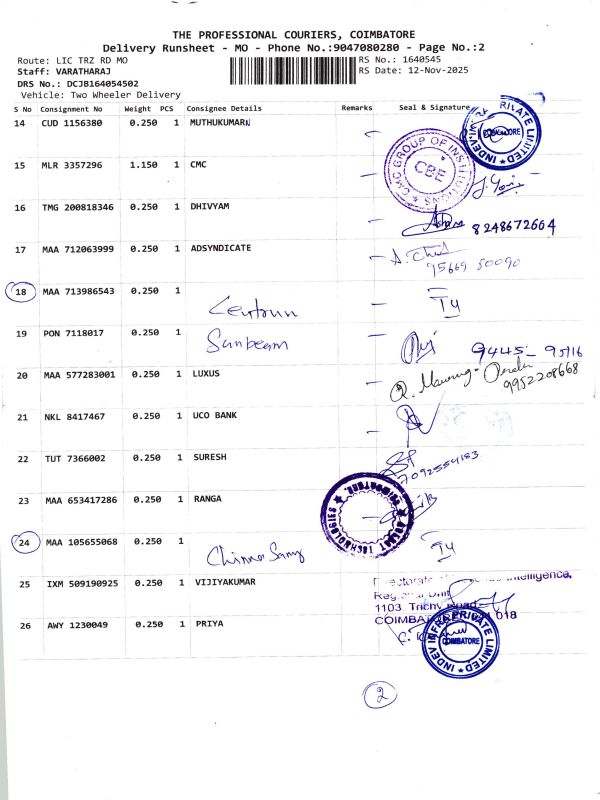 THE PROFESSIONAL COURIERS, COIMBATORE
Delivery Runsheet - MO - Phone No.:9047080280 - Page No.:2
Route: LIC TRZ RD MO RS No.: 1640545
Staff: VARATHARAJ RS Date: 12-Nov-2025
DRS No.: DCJB164054502
Vehicle: Two Wheeler Delivery
S No Consignment No Weight PCS Consignee Details Remarks Seal & Signature
14 CUD 1156380 0.250 1 MUTHUKUMARN
INDEV INFRA PRIVATE LIMITED COIMBATORE
15 MLR 3357296 1.150 1 CMC
CMC GROUP OF INSTITUTIONS CBE
16 TMG 200818346 0.250 1 DHIVYAM
8248672664
17 MAA 712063999 0.250 1 ADSYNDICATE
95669 50090
18 MAA 713986543 0.250 1
19 PON 7118017 0.250 1 Sunbeam
9445-95116
20 MAA 577283001 0.250 1 LUXUS
9952208668
21 NKL 8417467 0.250 1 UCO BANK
22 TUT 7366002 0.250 1 SURESH
7092554183
23 MAA 653417286 0.250 1 RANGA
TECHNOLOGIES COIMBATORE
24 MAA 105655068 0.250 1 Chinna Samy
25 IXM 509190925 0.250 1 VIJIYAKUMAR
Intelligence,
Regional Unit
1103, Trichy Road
COIMBATORE 018
26 AWY 1230049 0.250 1 PRIYA
INDEV INFRA PRIVATE LIMITED COIMBATORE
2